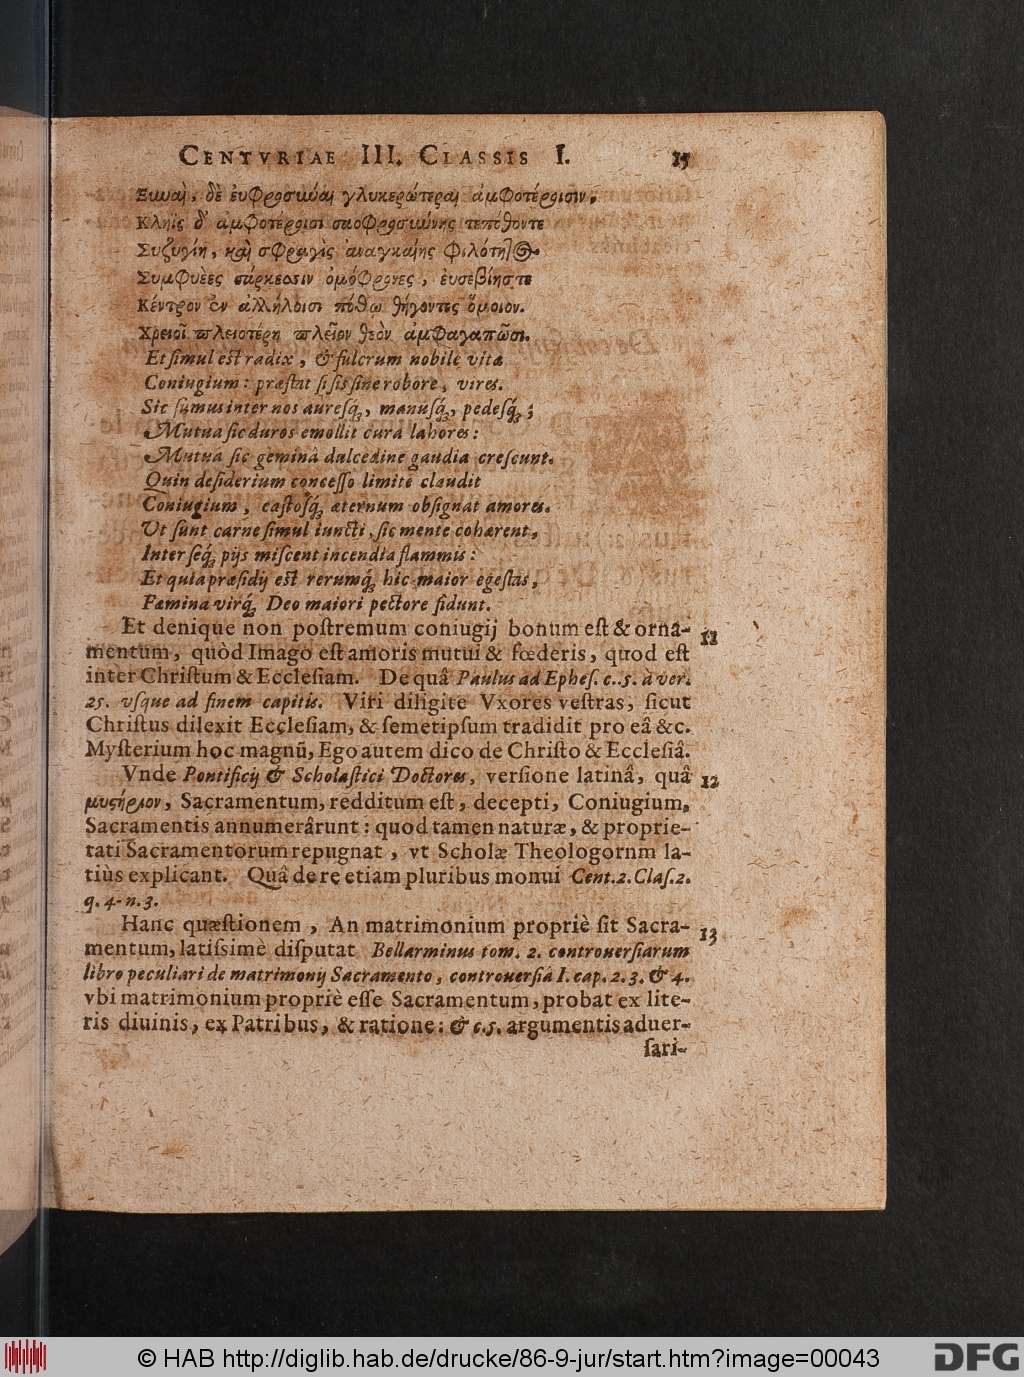 CENTVRIAE III. CLASSIS I. 15
Ξυναὶ, δὲ ἐυφροσύναι γλυκερώτεραι ἀμφοτέροισιν,
Κληὶς δ' ἀμφοτέροισι σαοφροσιώης πεπόθοντε
Συζυγίη, καὶ σφραγὶς ἀναγκαίης φιλότητος
Συμφυέες σάρκεσσιν ὁμόφρονες, ἐυσεβίης τε
Κέντρον ἐν ἀλλήλοισι πόθῳ θήγοντες ὅμοιον.
Χρειοῖ πλειοτέρη πλεῖον θεὸν ἀμφαγαπῶσι.
Et ſimul eſt radix, & fulcrum nobile vitæ
Coniugium: præſtat ſi ſis ſine robore, vires.
Sic ſumus inter nos aureſq́;, manuſq́;, pedeſq́;;
Mutua ſic duros emollit cura labores:
Mutuâ ſic geminâ dulcedine gaudia creſcunt.
Quin deſiderium conceſſo limite claudit
Coniugium, caſtoſq́; æternum obſignat amores.
Vt ſunt carne ſimul iuncti, ſic mente cohærent,
Inter ſeq́; pijs miſcent incendia flammis:
Et quia præſidij eſt rerumq́; hic maior egeſtas,
Fæmina virq́; Deo maiori pectore fidunt.
Et denique non poſtremum coniugij bonum eſt & orna- 11
mentum, quòd Imago eſt amoris mutui & fœderis, quod eſt
inter Chriſtum & Eccleſiam. De quâ Paulus ad Epheſ. c. 5. à ver.
25. vſque ad finem capitis. Viri diligite Vxores veſtras, ſicut
Chriſtus dilexit Eccleſiam, & ſemetipſum tradidit pro eâ &c.
Myſterium hoc magnũ, Ego autem dico de Chriſto & Eccleſiâ.
Vnde Pontificij & Scholaſtici Doctores, verſione latinâ, quâ 12
μυςήριον, Sacramentum, redditum eſt, decepti, Coniugium,
Sacramentis annumerârunt: quod tamen naturæ, & proprie-
tati Sacramentorum repugnat, vt Scholæ Theologornm la-
tiùs explicant. Quâ de re etiam pluribus monui Cent. 2. Claſ. 2.
q. 4. n. 3.
Hanc quæſtionem, An matrimonium propriè ſit Sacra- 13
mentum, latiſsimè diſputat Bellarminus tom. 2. controuerſiarum
libro peculiari de matrimonij Sacramento, controuerſiâ I. cap. 2. 3. & 4.
vbi matrimonium propriè eſſe Sacramentum, probat ex lite-
ris diuinis, ex Patribus, & ratione: & c. 5. argumentis aduer-
ſari-
© HAB http://diglib.hab.de/drucke/86-9-jur/start.htm?image=00043
DFG